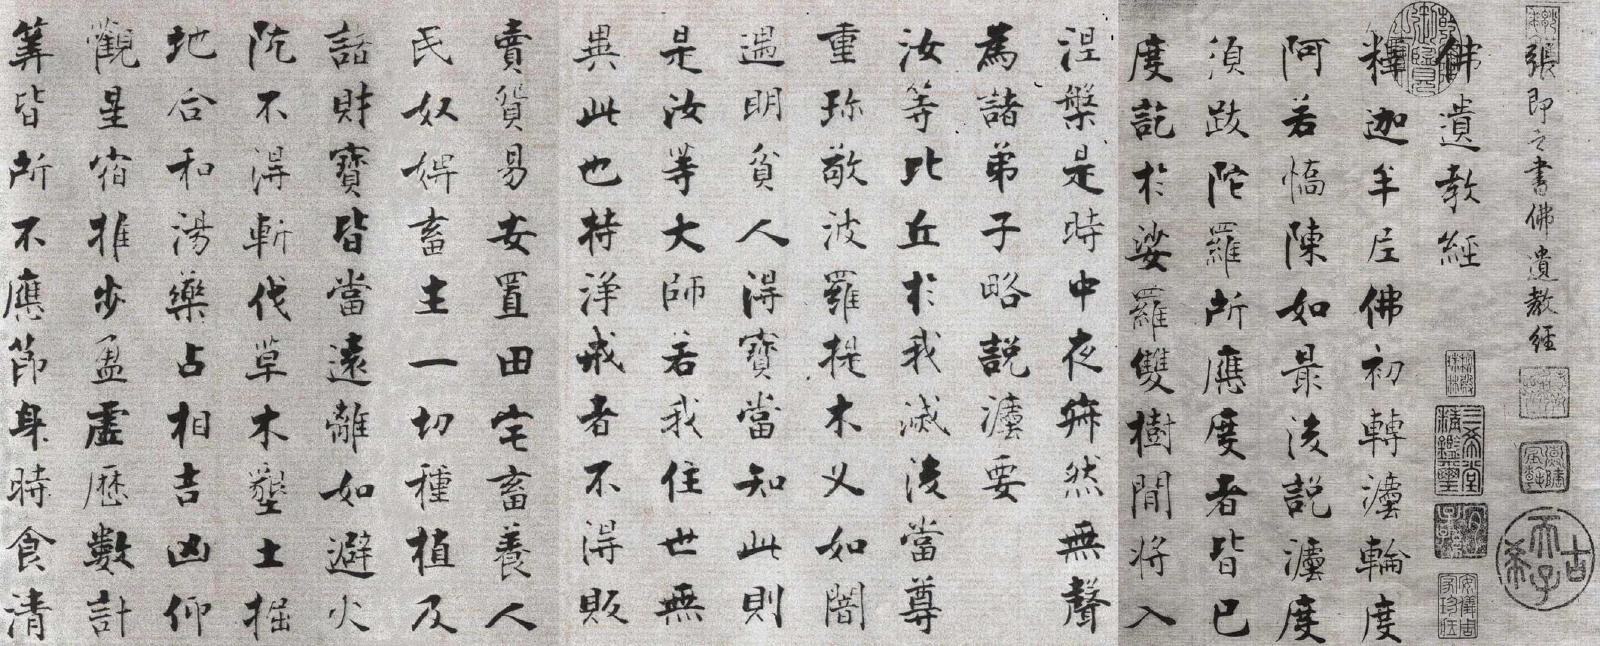 張即之書佛遺教經
佛遺教經
釋迦牟尼佛初轉灋輪度
阿若憍陳如最後説灋度
須跋陀羅所應度者皆已
度訖於娑羅雙樹間將入
涅槃是時中夜寂然無聲
為諸弟子略説灋要
汝等比丘於我滅後當尊
重珎敬波羅提木叉如闇
遇明貧人得寶當知此則
是汝等大師若我住世無
異此也持淨戒者不得販
賣貿易安置田宅畜養人
民奴婢畜生一切種植及
諸財寶皆當遠離如避火
阬不得斬伐草木墾土掘
地合和湯藥占相吉凶仰
觀星宿推步盈虛歷數計
筭皆所不應節身時食清
三希堂精鑑璽
古希天子